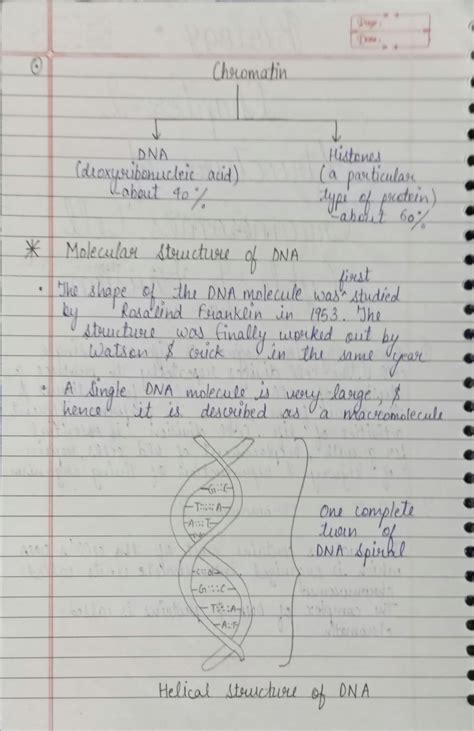 Page:
Date:
Chromatin
DNA
(deoxyribonucleic acid)
about 40%
Histones
(a particular
type of protein)
about 60%
* Molecular structure of DNA
first
• The shape of the DNA molecule was ^ studied
by Rosalind Franklin in 1953. The
structure was finally worked out by
Watson & Crick in the same year
• A single DNA molecule is very large &
hence it is described as a macromolecule
G:::C
T::::A
A:::T
G:::C
T:::A
A::T
One complete
turn of
DNA spiral
Helical structure of DNA